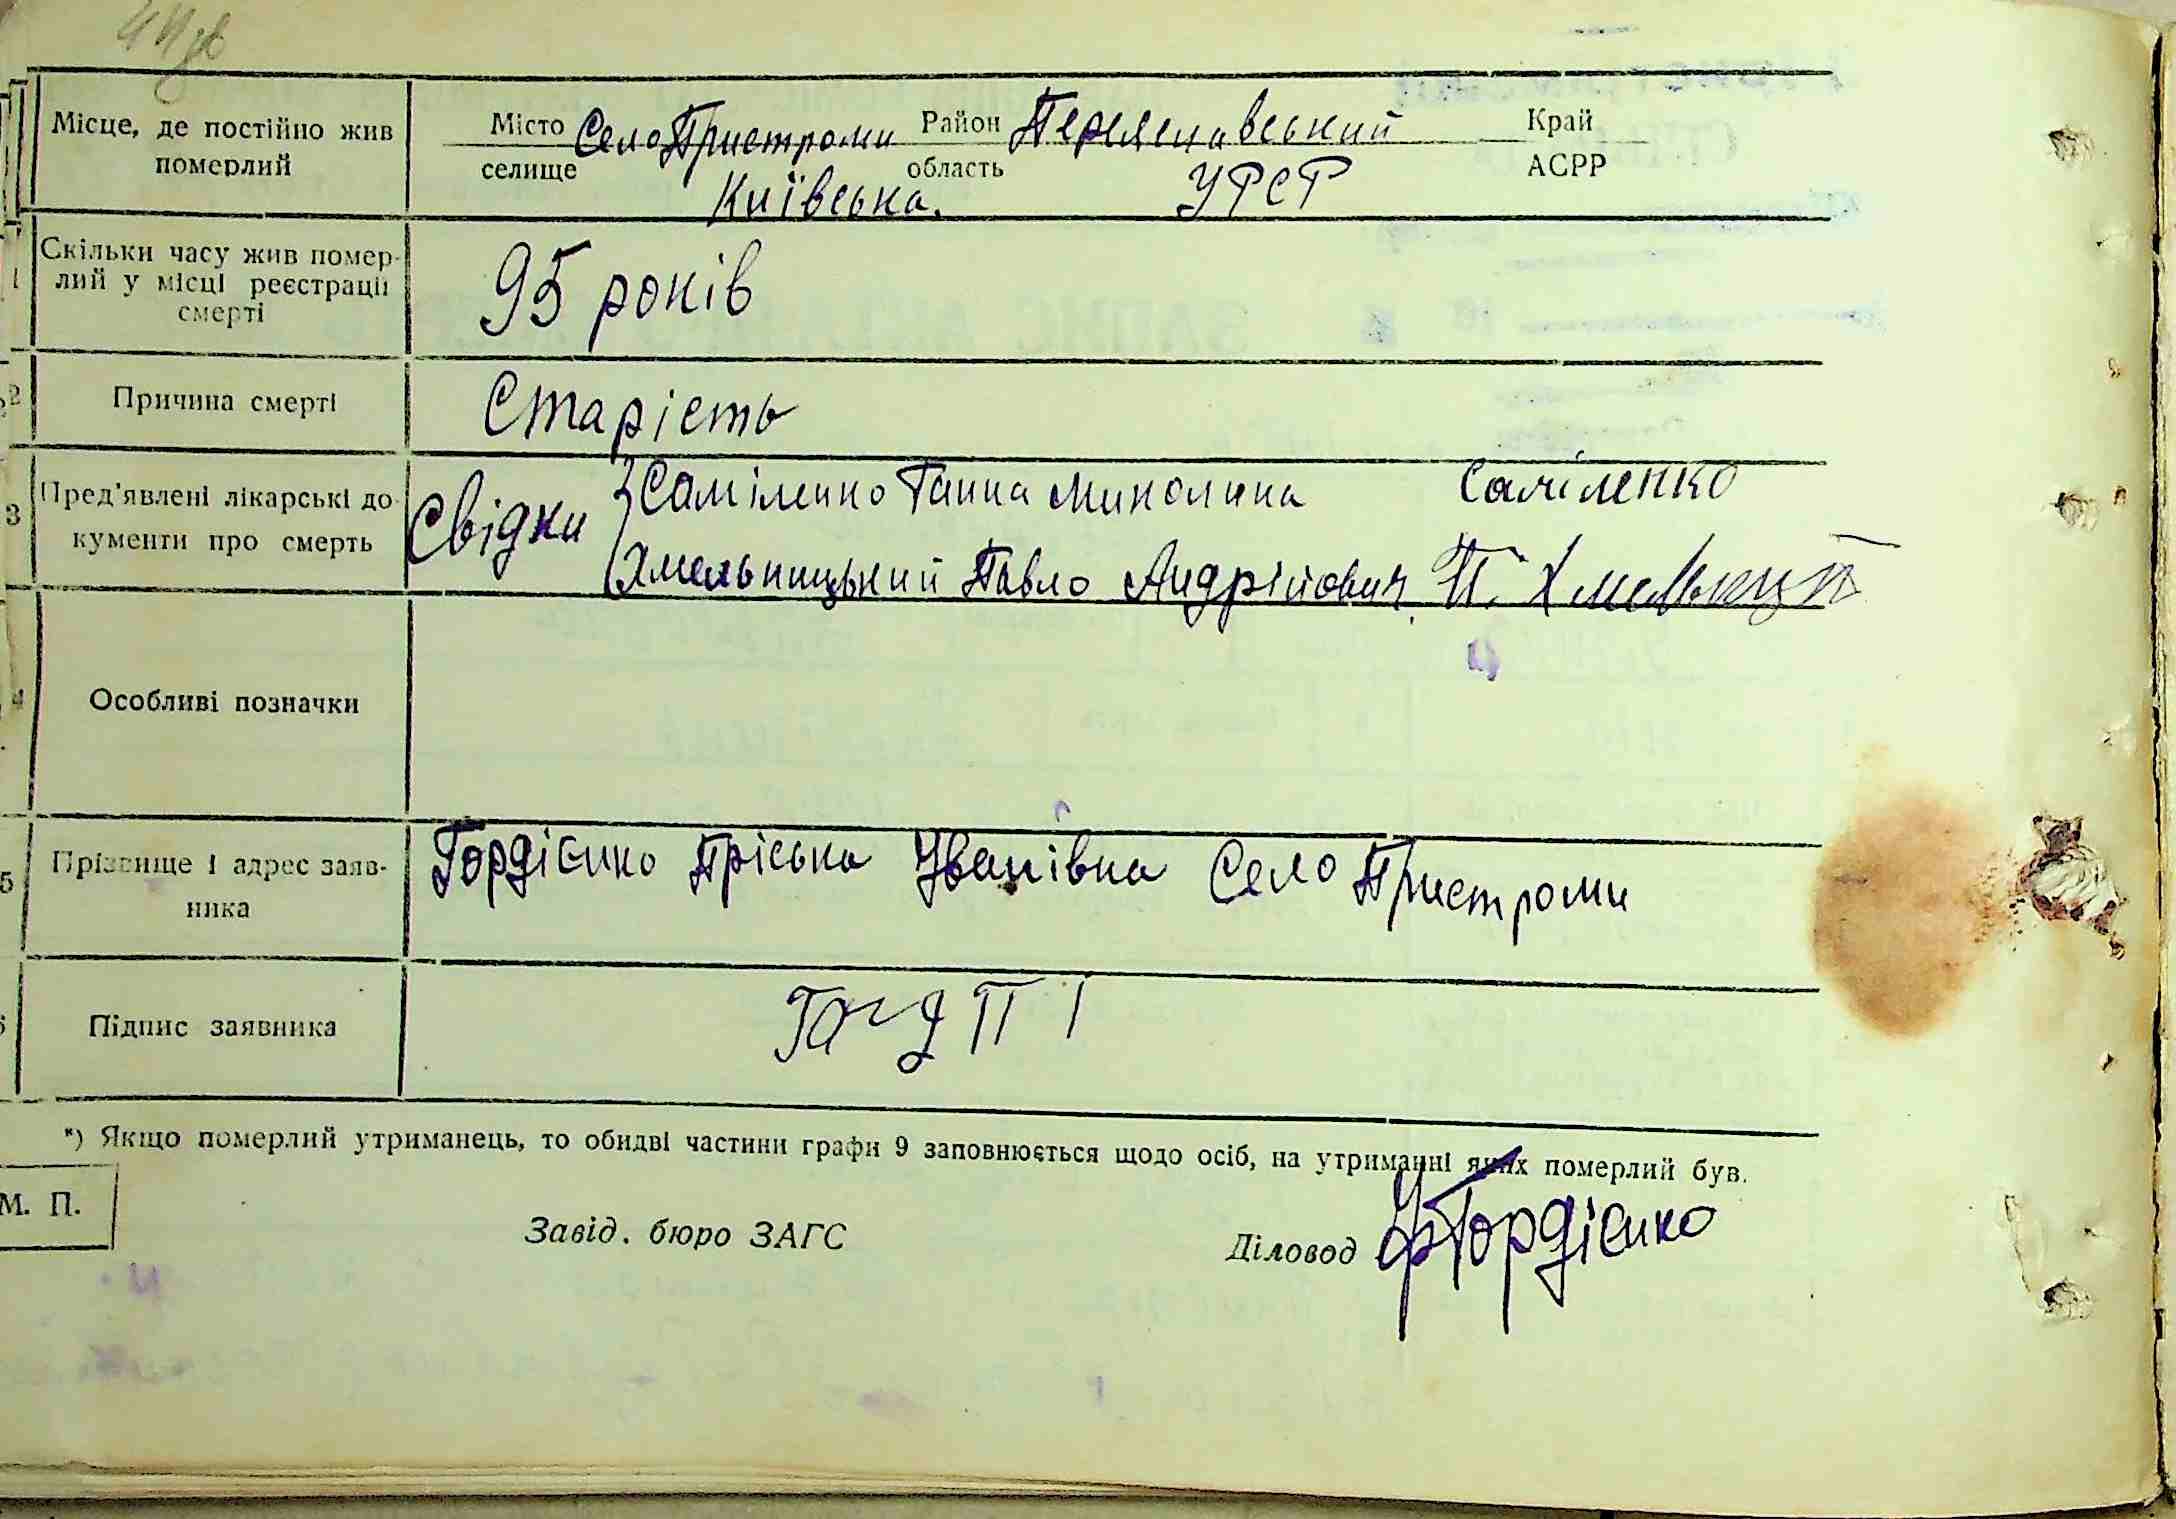 Місце, де постійно жив померлий
Місто Село Пристроми Район Переяславський Край
селище область АСРР
Київська. УРСР
1 Скільки часу жив помер-
лий у місці реєстрації
смерті
95 років
2 Причина смерті
Старість
3 Пред'явлені лікарські до-
кументи про смерть
Свідки Саміленко Ганна Миколина Саміленко
Хмельницький Павло Андрійович П. Хмельниц
4 Особливі позначки
5 Прізвище і адрес заяв-
ника
Гордієнко Пріська Уванівна Село Пристроми
Підпис заявника
Горд П І
*) Якщо померлий утриманець, то обидві частини графи 9 заповнюється щодо осіб, на утриманні яких померлий був.
М. П.
Завід. бюро ЗАГС
Діловод Гордієнко